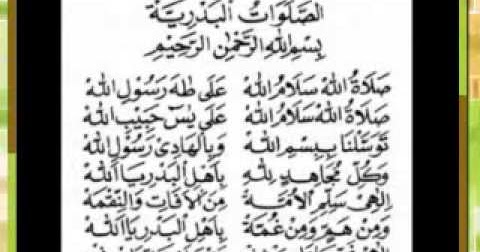 الصَّلَوَاتُ الْبَدْرِيَّةُ
بِسْمِ اللهِ الرَّحْمٰنِ الرَّحِيْمِ
صَلَاةُ اللهْ سَلَامُ اللهْ عَلَى طٰهَ رَسُوْلِ اللهْ
صَلَاةُ اللهْ سَلَامُ اللهْ عَلَى يٰسٓ حَبِيْبِ اللهْ
تَوَسَّلْنَا بِبِسْمِ اللهْ وَبِالْهَادِيْ رَسُوْلِ اللهْ
وَكُلِّ مُجَاهِدٍ لِلّٰهِ بِاَهْلِ الْبَدْرِ يَا اَللهْ
اِلٰهِيْ سَلِّمِ الْاُمَّةْ مِنَ الْاٰفَاتِ وَالنِّقْمَةْ
وَمِنْ هَمٍّ وَمِنْ غُمَّةْ بِاَهْلِ الْبَدْرِ يَا اَللهْ